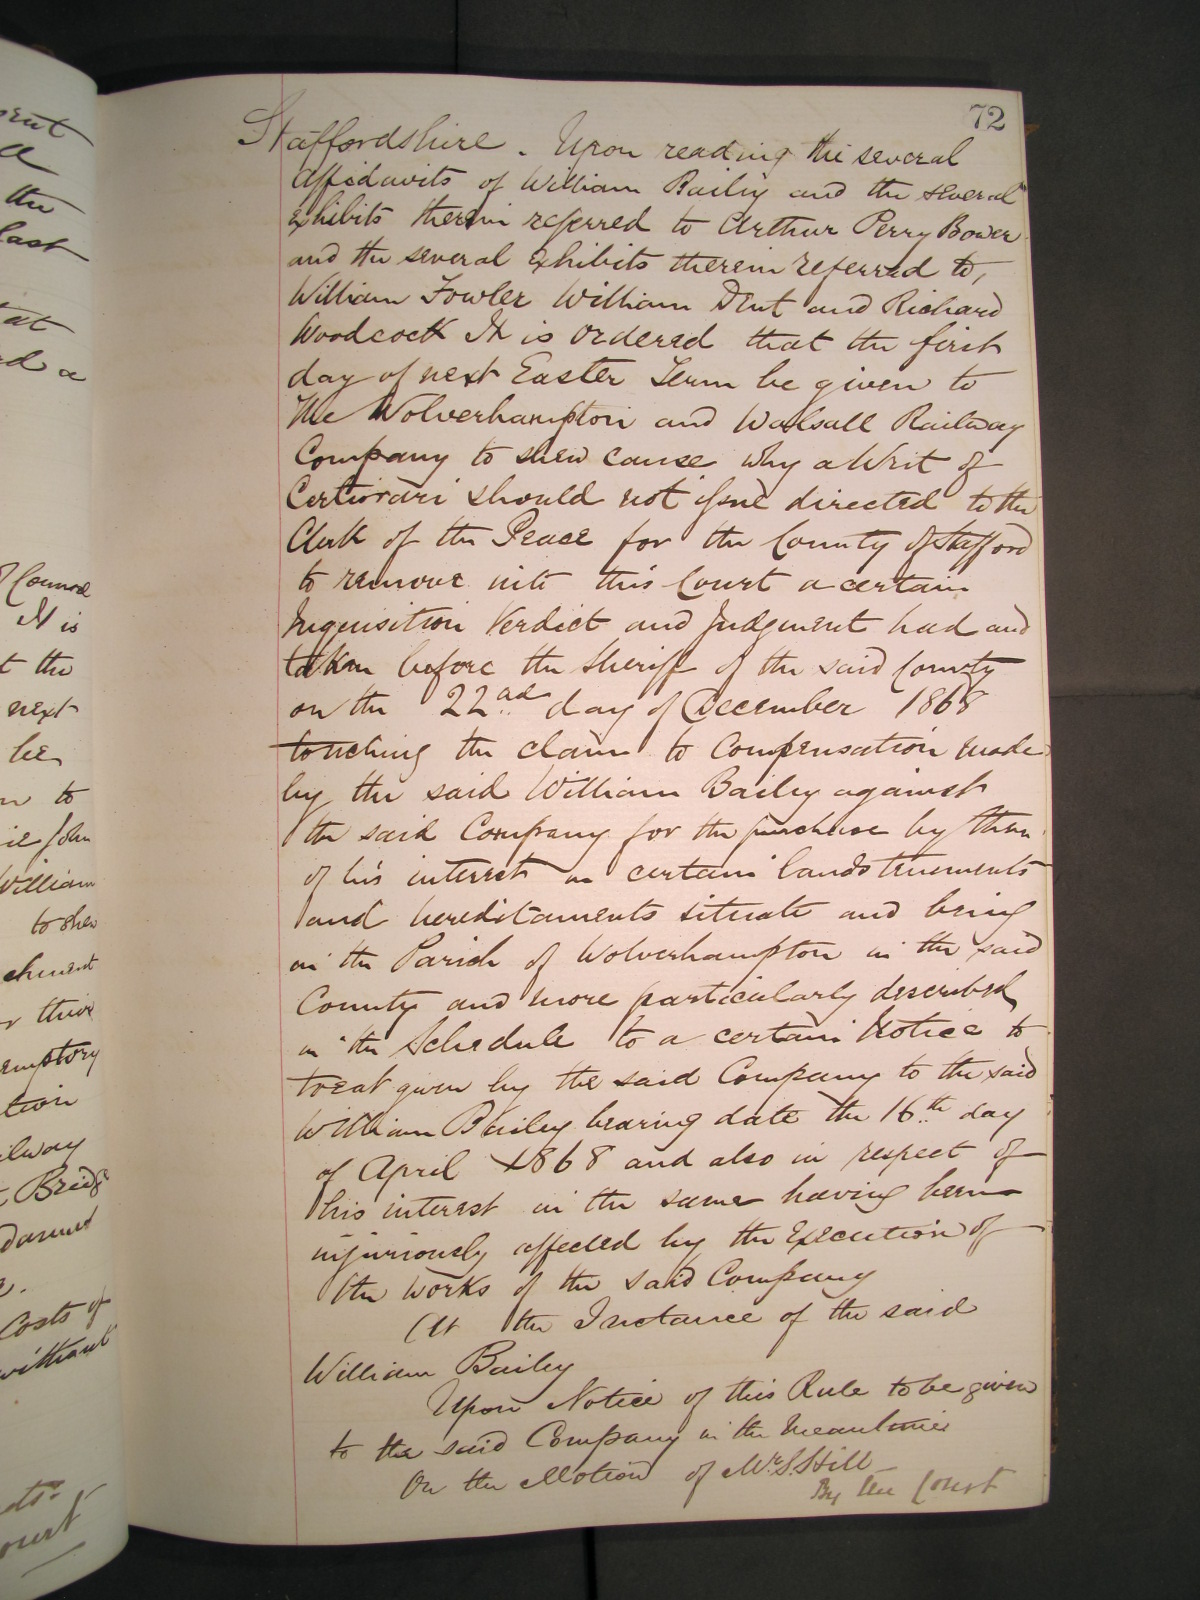 72
Staffordshire. Upon reading the several
affidavits of William Bailey and the several
exhibits therein referred to Arthur Perry Bower
and the several exhibits therein referred to,
William Fowler William Dent and Richard
Woodcock It is ordered that the first
day of next Easter Term be given to
The Wolverhampton and Walsall Railway
Company to shew cause why a Writ of
Certiorari should not issue directed to the
Clerk of the Peace for the County of Stafford
to remove into this Court a certain
Inquisition Verdict and Judgment had and
taken before the Sheriff of the said County
on the 22nd day of December 1868
touching the claim to Compensation made
by the said William Bailey against
the said Company for the purchase by them
of his interest in certain lands tenements
and hereditaments situate and being
in the Parish of Wolverhampton in the said
County and more particularly described
in the Schedule to a certain Notice to
treat given by the said Company to the said
William Bailey bearing date the 16th day
of April 1868 and also in respect of
his interest in the same having been
injuriously affected by the Execution of
the works of the said Company
At the Instance of the said
William Bailey
Upon Notice of this Rule to be given
to the said Company in the meantime
On the Motion of Mr. S. Hill
By the Court
the
last
at
d a
Council
It is
t the
next
be
to
John
William
to shew
their
emptory
tion
ilway
Costs of
without